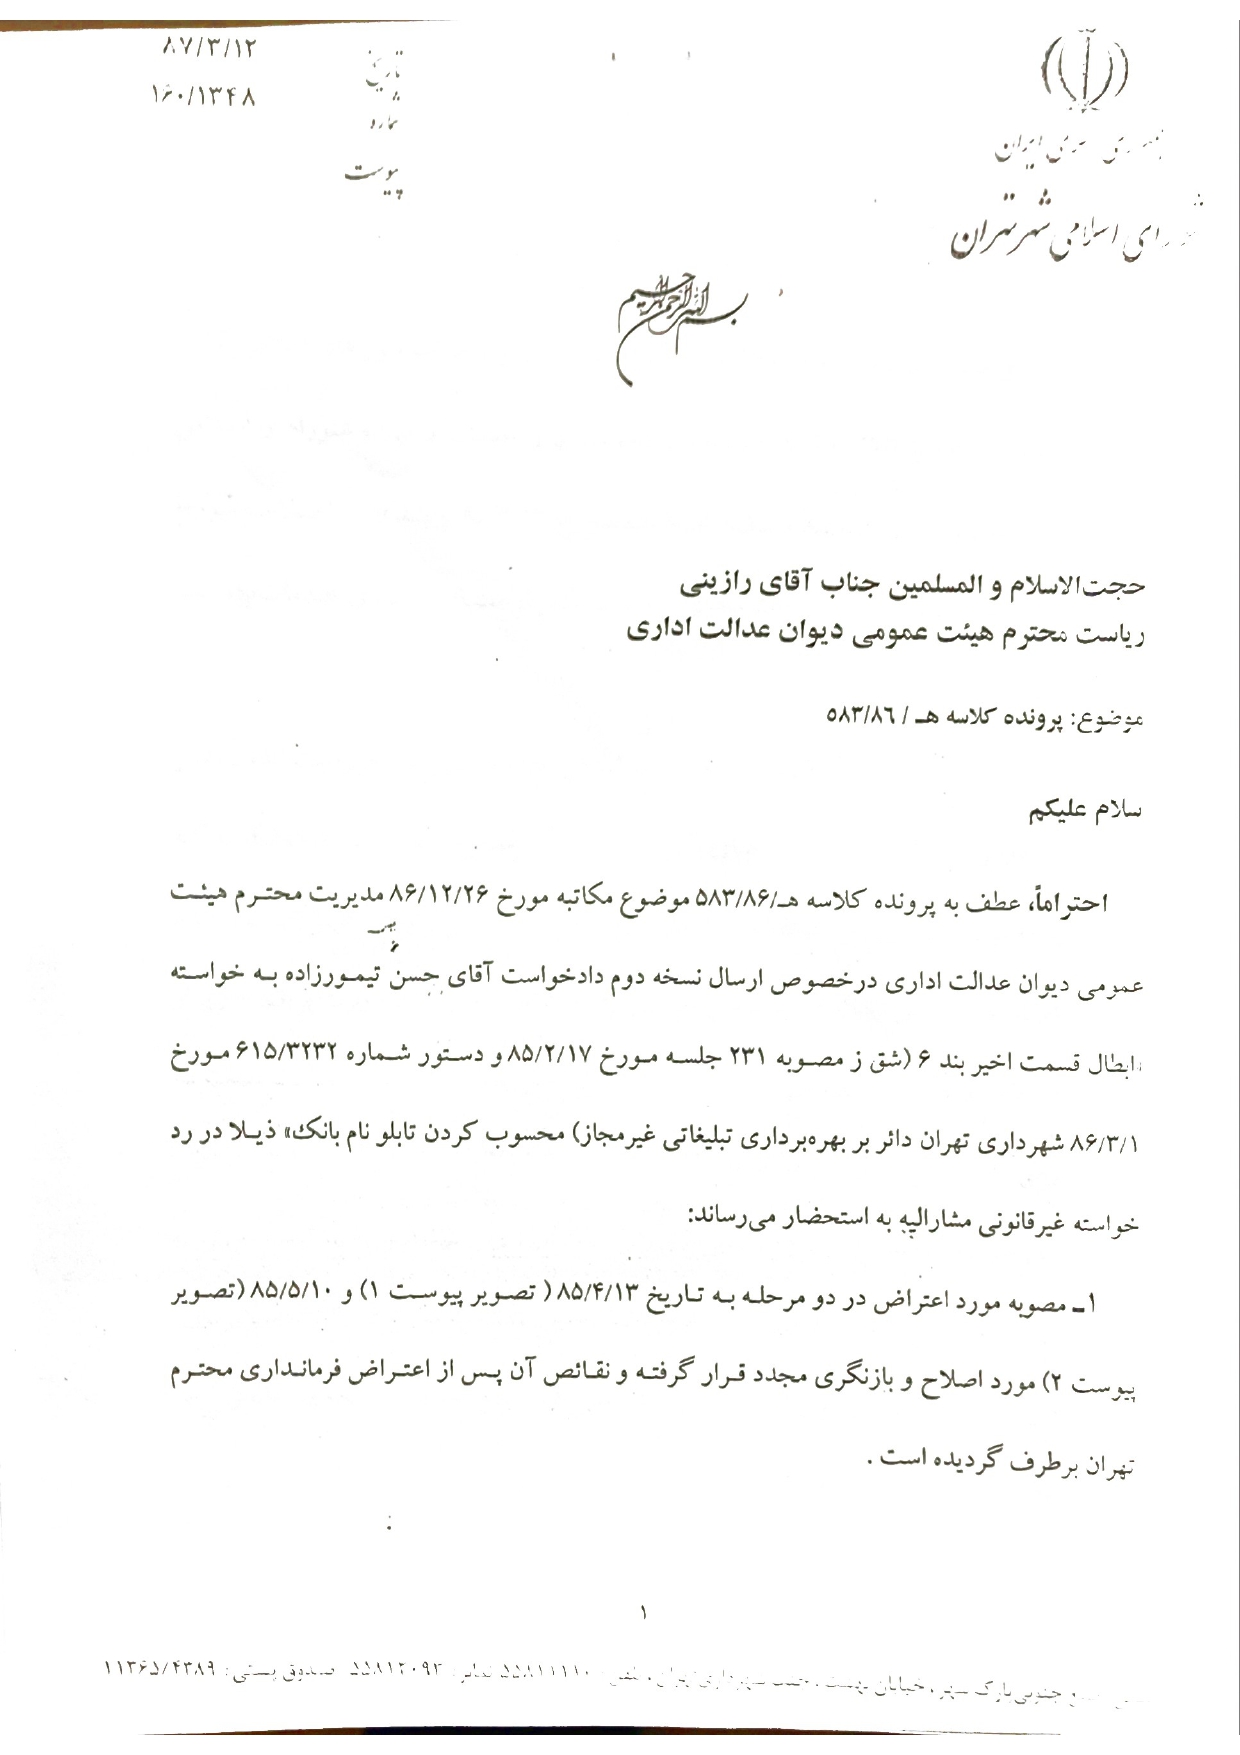 ۸۷/۳/۱۲
تاریخ
۱۶۰/۱۳۴۸
شماره
پیوست
ایران
شورای اسلامی شهر تهران
بسم الله الرحمن الرحیم
حجت‌الاسلام و المسلمین جناب آقای رازینی
ریاست محترم هیئت عمومی دیوان عدالت اداری
موضوع: پرونده کلاسه هـ / ۵۸۳/۸۶
سلام علیکم
احتراماً، عطف به پرونده کلاسه هـ/۵۸۳/۸۶ موضوع مکاتبه مورخ ۸۶/۱۲/۲۶ مدیریت محترم هیئت
عمومی دیوان عدالت اداری درخصوص ارسال نسخه دوم دادخواست آقای حسن تیمورزاده به خواسته
ابطال قسمت اخیر بند ۶ (شق ز مصوبه ۲۳۱ جلسه مورخ ۸۵/۲/۱۷ و دستور شماره ۶۱۵/۳۲۳۲ مورخ
۸۶/۳/۱ شهرداری تهران دائر بر بهره‌برداری تبلیغاتی غیرمجاز) محسوب کردن تابلو نام بانک» ذیلا در رد
خواسته غیرقانونی مشارالیه به استحضار می‌رساند:
۱ـ مصوبه مورد اعتراض در دو مرحله به تاریخ ۸۵/۴/۱۳ ( تصویر پیوست ۱) و ۸۵/۵/۱۰ (تصویر
پیوست ۲) مورد اصلاح و بازنگری مجدد قرار گرفته و نقائص آن پس از اعتراض فرمانداری محترم
تهران برطرف گردیده است .
۱
جنوبی پارک شهر، خیابان بهشت، صندوق پستی: ۱۱۳۶۵/۴۳۸۹